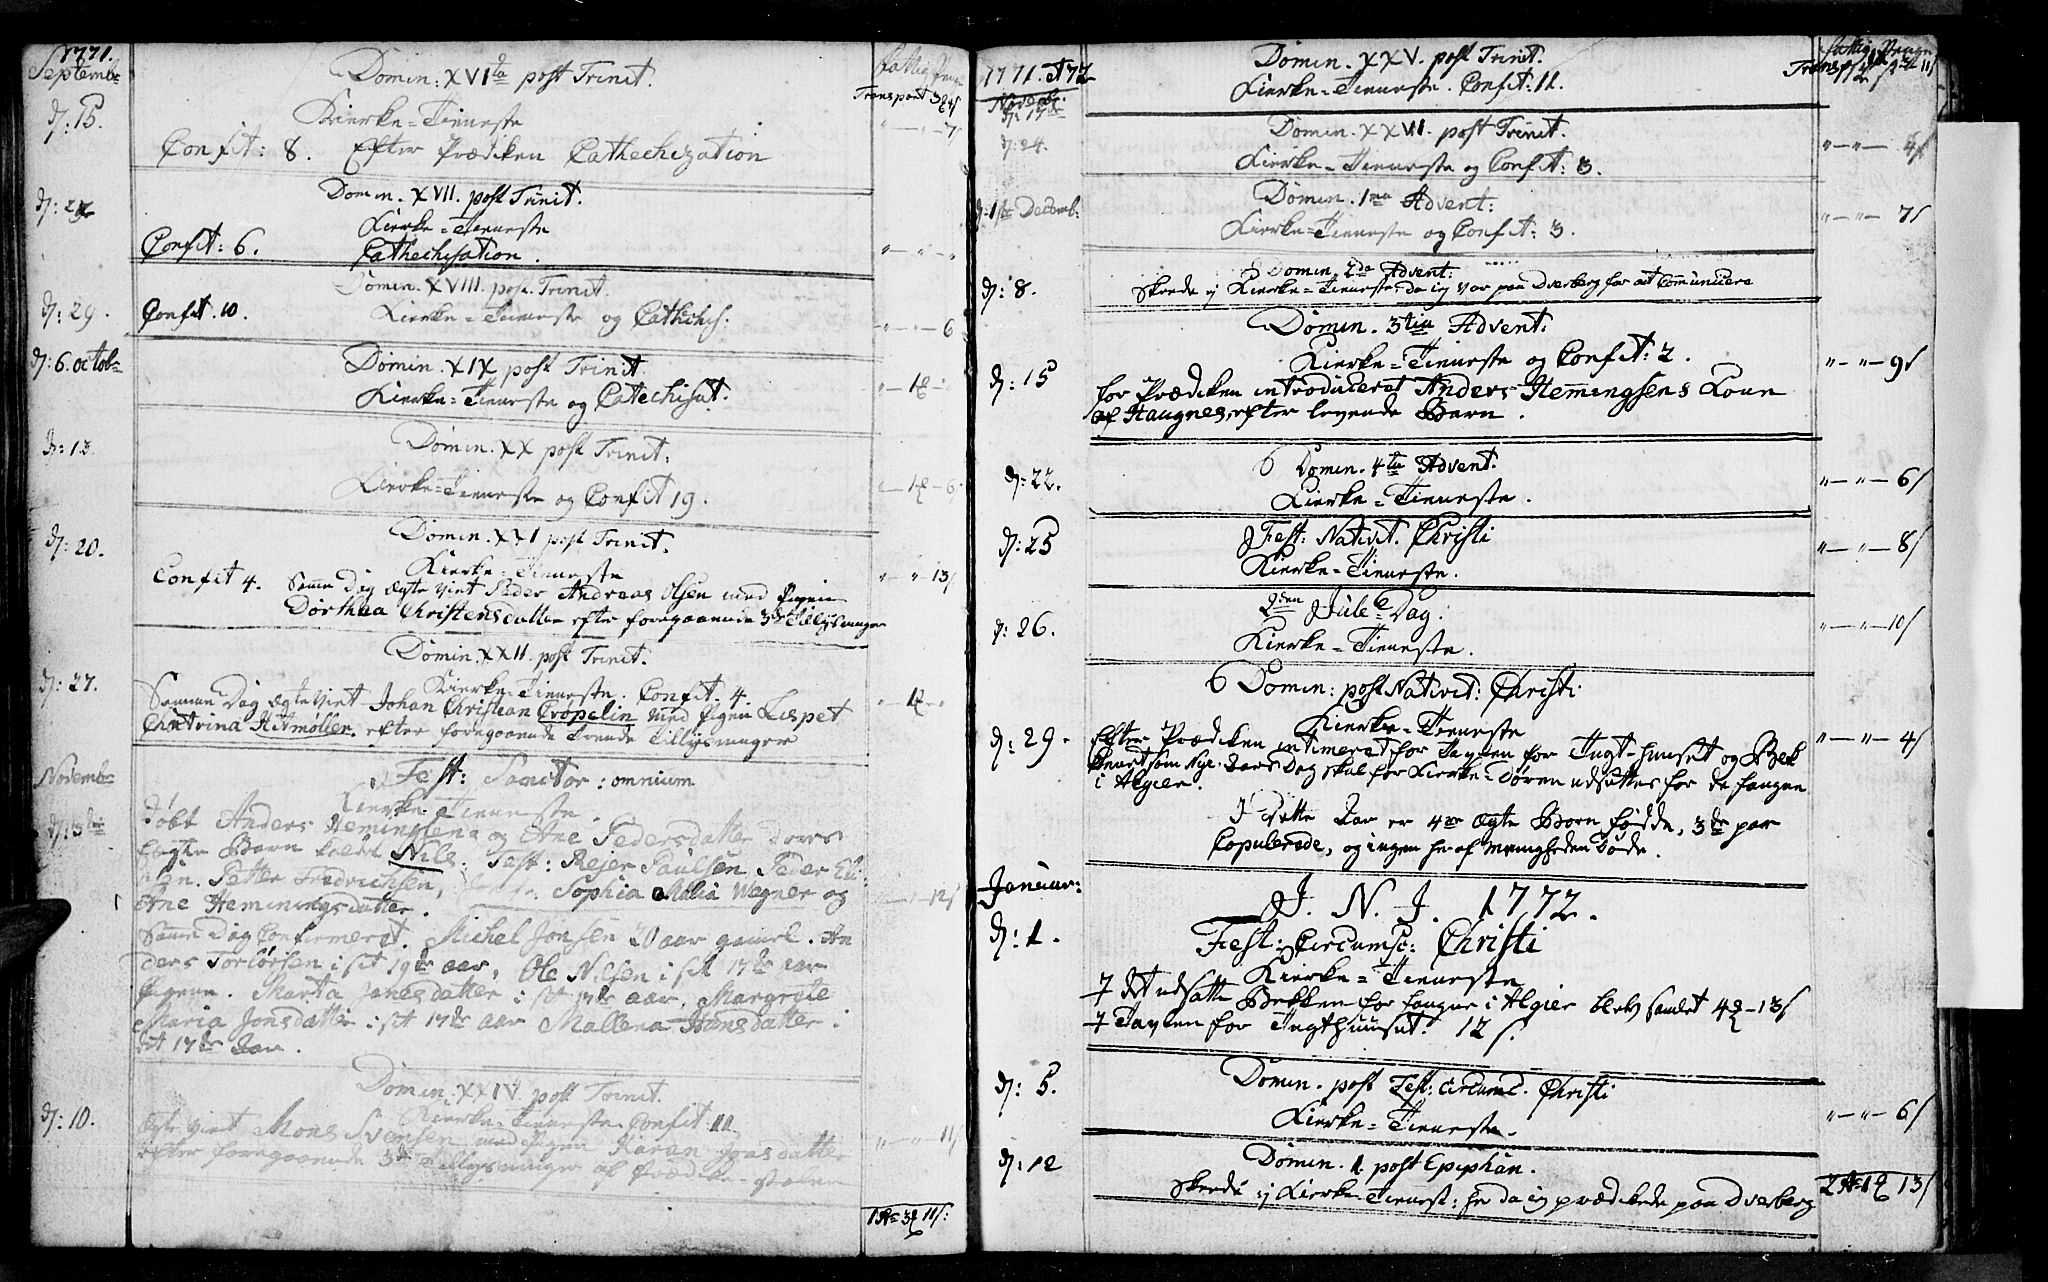 1771.
Septembr
Domin: XVIta post Trinit.
Fattig Penge
Transport 3 4s
d: 15.
Kierke=Tieneste
" — " — 7s
Confit: 8. Efter Prædiken Cathechization
Domin. XVII. post Trinit.
d: 22
Kierke=Tieneste
Confit: 6. Cathechisation.
" — " — "
Domin. XVIII. post. Trinit.
d: 29. Confit. 10. Kierke=Tieneste og Cathechis:
" — " — 6
d: 6. octobr
Domin. XIX post Trinit.
Kierke=Tieneste og Catechisat.
d: 13.
Domin. XX post Trinit:
Kierke=Tieneste og Confit 19.
d: 20.
Domin. XXI post Trinit.
Kierke=Tieneste
" — " 13s
Confit 4. Samme Dag ægte viet Peder Andreas Olsen med Pigen
Dorthea Christensdatter efter foregaaende 3de Tillysninger
Domin. XXII. post Trinit.
d: 27.
Kierke=Tieneste. Confit. 4.
Samme Dag ægte viet Johan Christian Cröpelin med Pigen Lispet
Chatrina Hitmøller. efter foregaaende trende Tillysninger
Novembr
Fest: Sanctor: omnium
d: 3die
Kierke=Tieneste.
Døbt Anders Hemingsens og Ane Pedersdatter Deres
Egte Barn kaldet Nils. Test: Rejer Paulsen, Peder
Petter Fredrichsen, Sophia Malia Wegner og
Ane Hemingsdatter.
" — " — 12s
Samme Dag Confirmeret. Michel Jonsen 20 aar gamel. An
ders Torlørsen i sit 19de aar, Ole Nilsen i sit 17de aar
Pigerne. Marta Janesdatter i sit 17de aar. Margrete
Maria Jonsdatter i sit 17de aar Mallena Hansdatter i
sit 17de Aar.
Domin. XXIV. post Trinit.
d: 10.
Kierke=Tieneste. Confit: 11
Ægte viet Mons Svensen med Pigen Karen Jonsdatter
" — " — 11s
Efter foregaaende 3de Tillysninger af Prædike=stolen
1 Rd 3 11s:
1771. et 72
Novembr:
d: 17de
Domin. XXV. post Trinit.
Kierke=Tieneste. Confit: 11.
Fattig Penge
d: 24.
Domin. XXVI. post Trinit.
Kierke=Tieneste og Confit: 3.
" — " — 4s
d: 1ste Decemb:
Domin. 1ma Advent:
Kierke=Tieneste og Confit: 3.
" — " — 7s
d: 8.
Domin. 2da Advent:
Skeede ej Kierke=Tieneste, da jeg var paa Dverberg for at Communicere
Domin. 3tia Advent:
Kierke=Tieneste og Confit: 2.
" — " — 9s
d: 15
for Prædiken introduceret Anders Hemingsens Kone
af Haugnes, efter levende Barn.
Domin. 4ta Advent.
d: 22.
Kierke=Tieneste.
" — " — 6s
d: 25
Fest: Nativit. Christi
Kierke=Tieneste.
" — " — 8s
2den Jule=Dag.
d: 26.
Kierke=Tieneste.
" — " — 10s
Domin: post Nativit: Christi
Kierke=Tieneste
d: 29.
" — " — 4s
Efter Prædiken intimeret for Tavlen for Tugt-huuset og Bek
kenet som Nye. Aars Dag skal for Kierke-Døren udsættes for de fangne
i Algier.
I dette Aar er 4re ægte Børn fødde, 3de par
Copulerede, og ingen her af Menigheden døde.
Januar:
J. N. J. 1772.
d: 1.
Fest: Circumsc: Christi
Kierke=Tieneste
I det udsatte Bekken for fangne i Algier blev samlet 4 — 13s
I Tavlen for Tugthuuset. 12s.
d: 5.
Domin. post Fest: Circumc. Christi
Kierke=Tieneste.
" — " — 6s
d: 12
Domin. 1. post Epiphan.
Skeede ej Kierke=Tienest: her da jeg prædikede paa Dverberg
2 Rd 1 13s